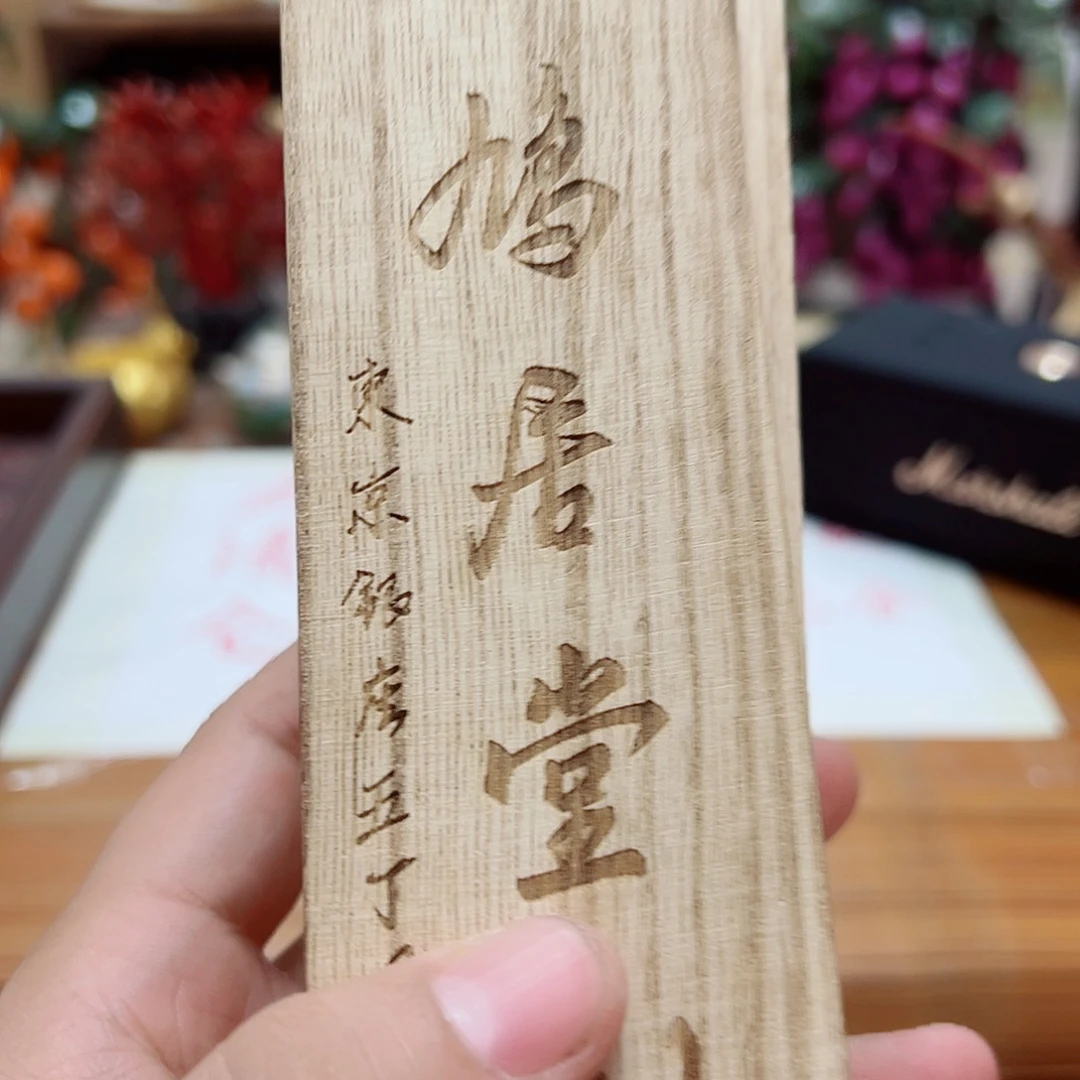 鳩居堂
東京銀座五丁
Marshall